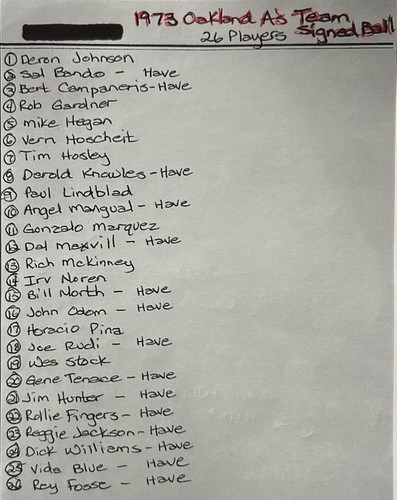 1973 Oakland A's Team
26 Players Signed Ball
1 Deron Johnson
2 Sal Bando - Have
3 Bert Campaneris - Have
4 Rob Gardner
5 Mike Hegan
6 Vern Hoscheit
7 Tim Hosley
8 Darold Knowles - Have
9 Paul Lindblad
10 Angel Mangual - Have
11 Gonzalo Marquez
12 Dal Maxvill - Have
13 Rich McKinney
14 Irv Noren
15 Bill North - Have
16 John Odom - Have
17 Horacio Pina
18 Joe Rudi - Have
19 Wes Stock
20 Gene Tenace - Have
21 Jim Hunter - Have
22 Rollie Fingers - Have
23 Reggie Jackson - Have
24 Dick Williams - Have
25 Vida Blue - Have
26 Ray Fosse - Have